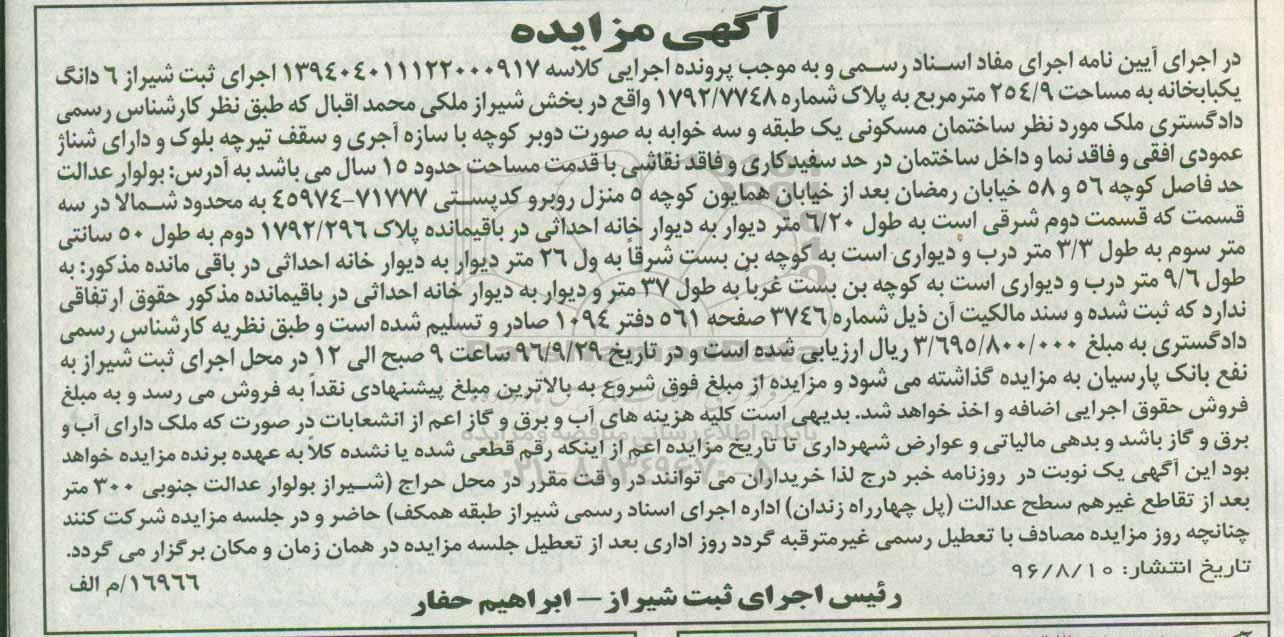 آگهی مزایده
در اجرای آیین نامه اجرای مفاد اسناد رسمی و به موجب پرونده اجرایی کلاسه ۱۳۹٤۰٤۰۱۱۱۲۲۰۰۰۹۱۷ اجرای ثبت شیراز ٦ دانگ
یکبابخانه به مساحت ۲٥٤/۹ مترمربع به پلاک شماره ۱۷۹۲/۷۷٤۸ واقع در بخش شیراز ملکی محمد اقبال که طبق نظر کارشناس رسمی
دادگستری ملک مورد نظر ساختمان مسکونی یک طبقه و سه خوابه به صورت دوبر کوچه با سازه آجری و سقف تیرچه بلوک و دارای شناژ
عمودی افقی و فاقد نما و داخل ساختمان در حد سفیدکاری و فاقد نقاشی با قدمت مساحت حدود ۱٥ سال می باشد به آدرس: بولوار عدالت
حد فاصل کوچه ٥٦ و ٥۸ خیابان رمضان بعد از خیابان همایون کوچه ٥ منزل روبرو کدپستی ۷۱۷۷۷-٤٥۹۷٤ به محدود شمالاً در سه
قسمت که قسمت دوم شرقی است به طول ٦/۲۰ متر دیوار به دیوار خانه احداثی در باقیمانده پلاک ۱۷۹۲/۲۹٦ دوم به طول ٥۰ سانتی
متر سوم به طول ۳/۳ متر درب و دیواری است به کوچه بن بست شرقاً به ول ۲٦ متر دیوار به دیوار خانه احداثی در باقی مانده مذکور: به
طول ۹/٦ متر درب و دیواری است به کوچه بن بست غرباً به طول ۳۷ متر و دیوار به دیوار خانه احداثی در باقیمانده مذکور حقوق ارتفاقی
ندارد که ثبت شده و سند مالکیت آن ذیل شماره ۳۷٤٦ صفحه ٥٦۱ دفتر ۱۰۹٤ صادر و تسلیم شده است و طبق نظریه کارشناس رسمی
دادگستری به مبلغ ۳/٦۹٥/۸۰۰/۰۰۰ ریال ارزیابی شده است و در تاریخ ۹٦/۹/۲۹ ساعت ۹ صبح الی ۱۲ در محل اجرای ثبت شیراز به
نفع بانک پارسیان به مزایده گذاشته می شود و مزایده از مبلغ فوق شروع به بالاترین مبلغ پیشنهادی نقداً به فروش می رسد و به مبلغ
فروش حقوق اجرایی اضافه و اخذ خواهد شد. بدیهی است کلیه هزینه های آب و برق و گاز اعم از انشعابات در صورت که ملک دارای آب و
برق و گاز باشد و بدهی مالیاتی و عوارض شهرداری تا تاریخ مزایده اعم از اینکه رقم قطعی شده یا نشده کلاً به عهده برنده مزایده خواهد
بود این آگهی یک نوبت در روزنامه خبر درج لذا خریداران می توانند در وقت مقرر در محل حراج (شیراز بولوار عدالت جنوبی ۳۰۰ متر
بعد از تقاطع غیرهم سطح عدالت (پل چهارراه زندان) اداره اجرای اسناد رسمی شیراز طبقه همکف) حاضر و در جلسه مزایده شرکت کنند
چنانچه روز مزایده مصادف با تعطیل رسمی غیرمترقبه گردد روز اداری بعد از تعطیل جلسه مزایده در همان زمان و مکان برگزار می گردد.
تاریخ انتشار: ۹٦/۸/۱۰
۱٦۹٦٦/م الف
رئیس اجرای ثبت شیراز – ابراهیم حفار
پایگاه اطلاع رسانی مناقصه و مزایده
۰۲۱-۸۸۳٤۹٦۷۰-٥